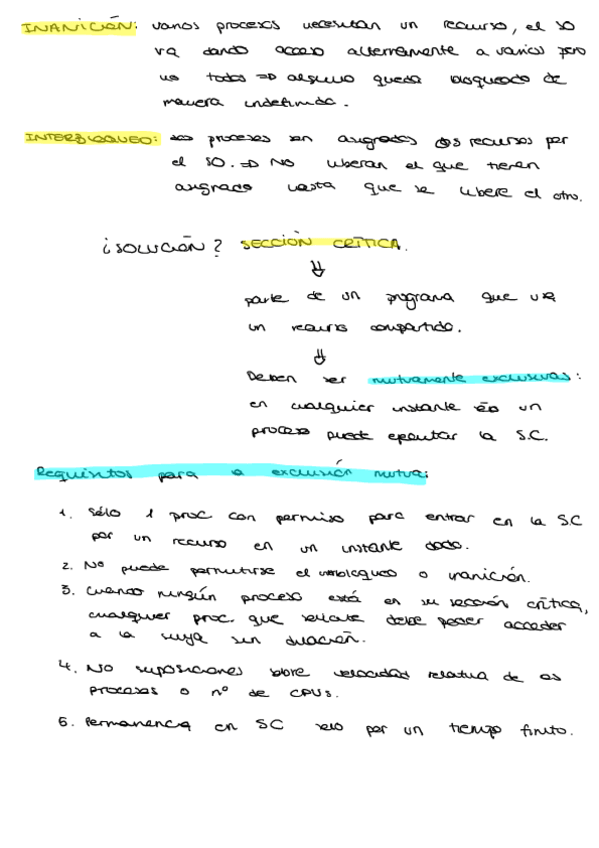 INANICIÓN: varios procesos necesitan un recurso, el SO
va dando acceso alternamente a varios pero
no todos => alguno queda bloqueado de
manera indefinida.
INTERBLOQUEO: procesos son asignados dos recursos por
el SO. => NO liberan el que tienen
asignado hasta que se libere el otro.
¿SOLUCIÓN? SECCIÓN CRÍTICA.
⇓
parte de un programa que usa
un recurso compartido.
⇓
Deben ser mutuamente exclusivas:
en cualquier instante sólo un
proceso puede ejecutar la S.C.
Requisitos para la exclusión mutua:
1. Sólo 1 proc con permiso para entrar en la SC
por un recurso en un instante dado.
2. No puede permitirse el interbloqueo o inanición.
3. Cuando ningún proceso está en su sección crítica,
cualquier proc. que solicite debe poder acceder
a la suya sin dilación.
4. No suposiciones sobre velocidad relativa de los
procesos o nº de CPUs.
5. Permanencia en SC solo por un tiempo finito.